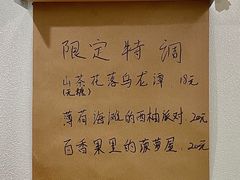 限定特调
山茶花落乌龙潭 18元
(无糖)
薄荷海滩的西柚派对 20元
百香果里的菠萝屋 20元